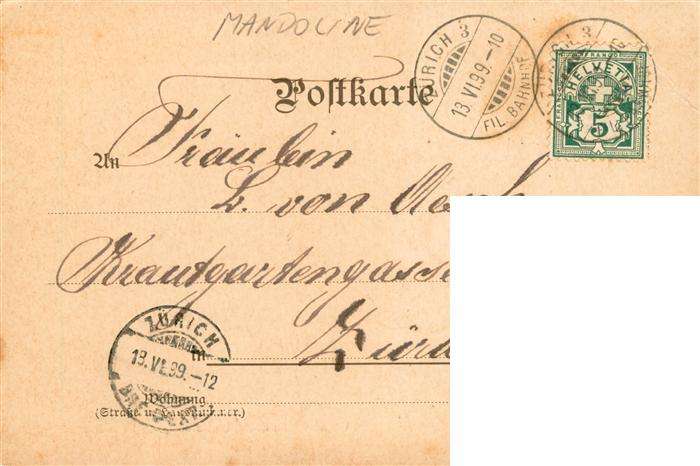 MANDOLINE
ZÜRICH 3
13.VI.99.-10
FIL. BAHNHOF
HELVETIA
5
Postkarte
An Fräulein
L. von
Krautgartengasse
ZÜRICH
13.VI.99.-12
in
Wohnung
(Straße u. Hausnummer.)